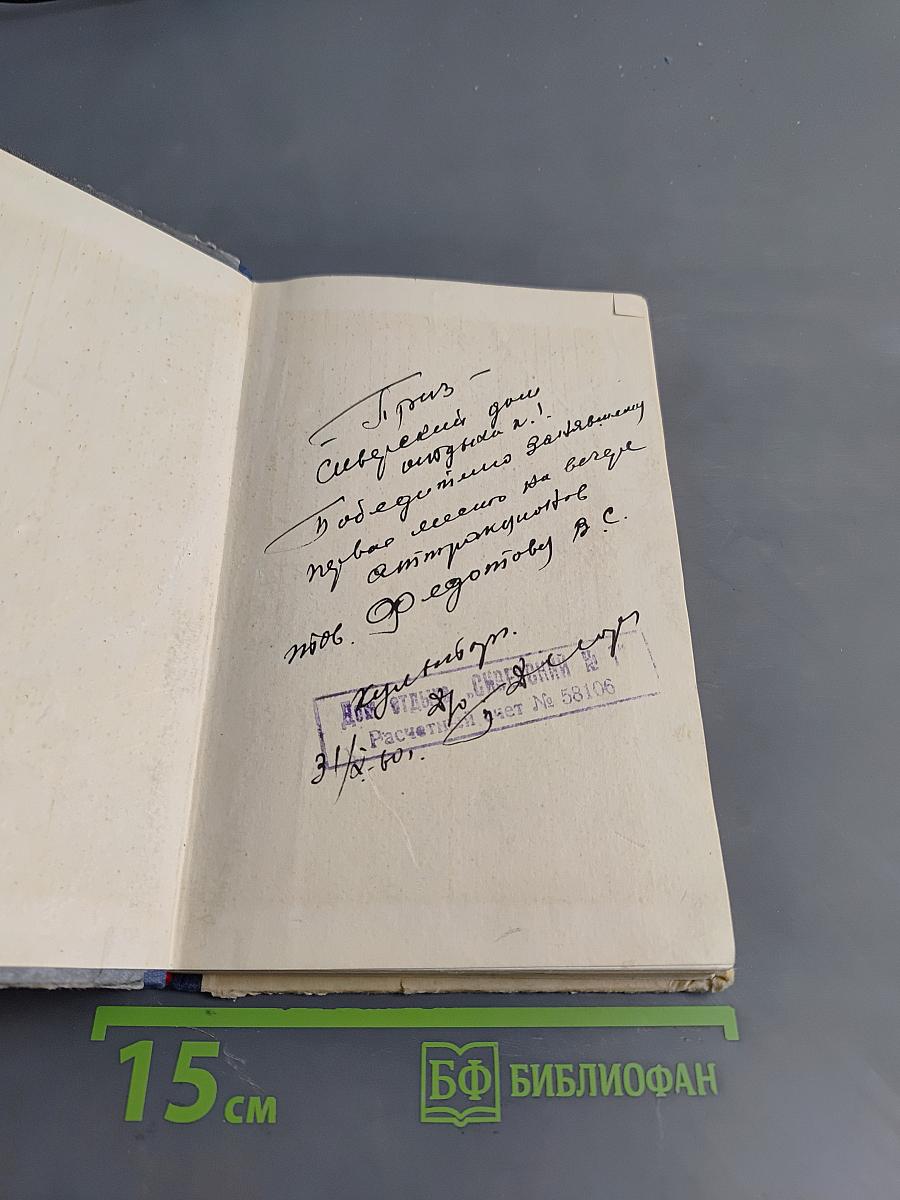 - Приз -
Сиверский дом
отдыха
Победителю занявшему
первое место на вечере
аттракционов
тов. Федотову В. С.
Культор.
Дом отдыха „Сиверский № 1"
Расчетный счет № 58106
31/X-60г.
15 см
БФ БИБЛИОФАН